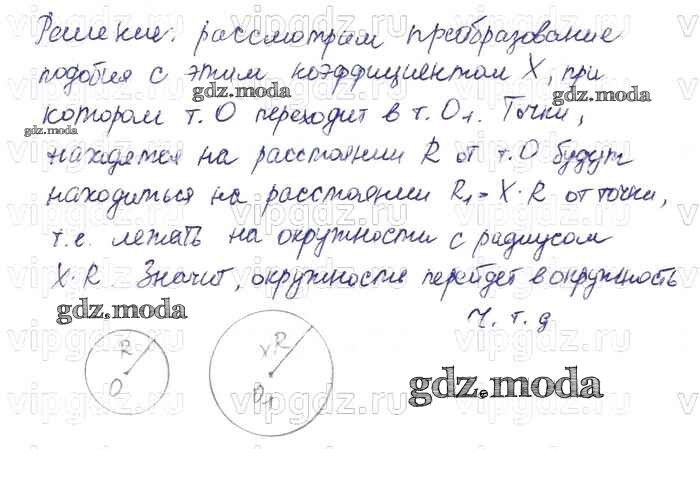 Решение: рассмотрим преобразование
подобия с этим коэффициентом X, при
gdz.moda
gdz.moda
котором т. O переходит в т. O₁. Точки,
gdz.moda
находятся на расстоянии R от т. O будут
находиться на расстоянии R₁ = X·R от точки,
т.е. лежать на окружности с радиусом
X·R. Значит, окружность перейдет в окружность
gdz.moda
ч. т. д
R
O
R
O₁
gdz.moda
vipgdz.ru